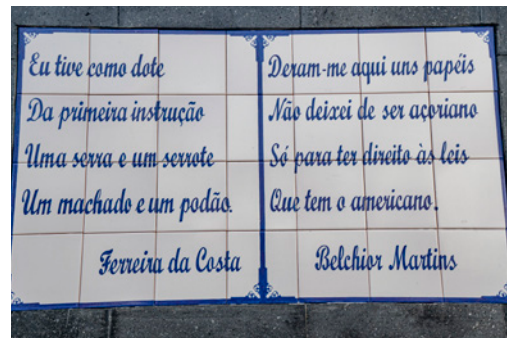 Eu tive como dote
Da primeira instrução
Uma serra e um serrote
Um machado e um podão.
Ferreira da Costa
Deram-me aqui uns papéis
Não deixei de ser açoriano
Só para ter direito às leis
Que tem o americano.
Belchior Martins